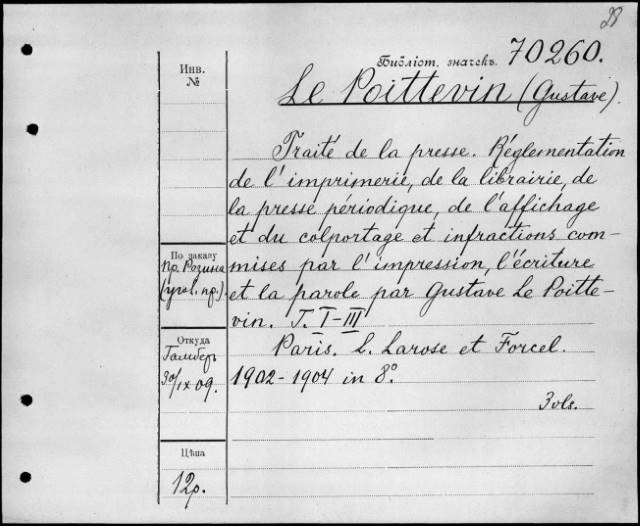 28
Библіот. значекъ. 70260.
Инв.
№
Le Poittevin (Gustave).
Traité de la presse. Réglementation
de l'imprimerie, de la librairie, de
la presse périodique, de l'affichage
et du colportage et infractions com-
mises par l'impression, l'écriture
et la parole par Gustave Le Poitte-
vin. T. I-III
Paris. L. Larose et Forcel.
1902-1904 in 8º
3 vls.
По заказу
пр. Розина
(угол. пр.).
Откуда
Гамбер
30/IX 09.
Цѣна
12р.